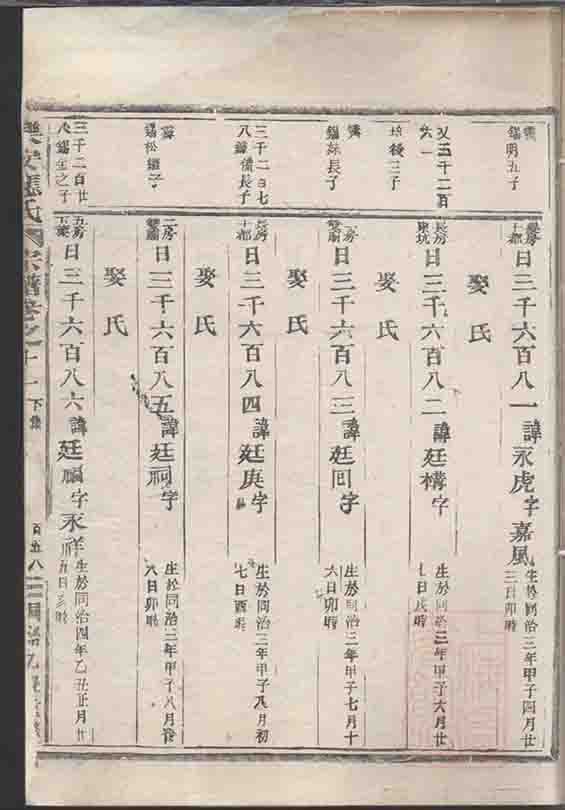 錫明五子
房
十都
日三千六百八一諱永虎字嘉風
生於同治三年甲子四月廿
三日卯時
娶氏
又三千二百
六一
培後三子
長房
東坑
日三千六百八二諱廷構字
生於同治三年甲子六月廿
七日戌時
娶氏
錫妹長子
二房
雙廟
日三千六百八三諱廷回字
生於同治三年甲子七月十
六日卯時
娶氏
三千二百七
八錫備長子
長房
十都
日三千六百八四諱廷庚字
生於同治三年甲子八月初
七日酉時
娶氏
錫松繼子
二房
雙廟
日三千六百八五諱廷祠字
生於同治三年甲子八月
八日卯時
娶氏
三千二百廿
八錫金之子
五房
下
日三千六百八六諱廷字永祥
生於同治四年乙丑正月廿
五日時
張氏宗譜卷之十一下集
百五八
同治乙